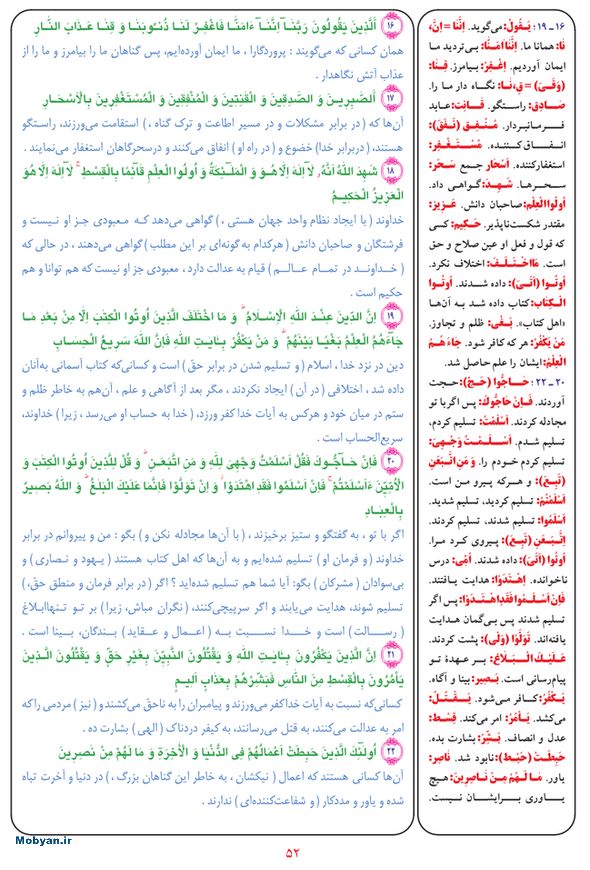 ۱۶ ـ ۱۹ : یَقُولُ: می‌گوید. إِنَّنَا = إِنَّ،
نَا: همانا ما. إِنَّنَا امَنَّا: بی‌تردید ما
ایمان آوردیم. إغْفِرْ: بیامرز. قِنَا:
(وَقَیَ) = قِ، نَا: نگاه دار ما را.
صَادِق: راستگو. قَانِت: عابد
فرمانبردار. مُنْفِق (نَفَقَ):
انفاق‌کننده. مُسْتَغْفِر:
استغفارکننده. أَسْحَار جمع سَحَر:
سحرها. شَهِدَ: گواهی داد.
أُولُوا الْعِلْمِ: صاحبان دانش. عَزِیز:
مقتدر شکست‌ناپذیر. حَکِیم: کسی
که قول و فعل او عین صلاح و حق
است. مَا اخْتَلَفَ: اختلاف نکرد.
أُوتُوا (أَتَیَ): داده شدند. أُوتُوا
الْکِتَابَ: کتاب داده شد به آن‌ها
«اهل کتاب». بَغْی: ظلم و تجاوز.
مَنْ یَکْفُرْ: هر که کافر شود. جَاءَهُمُ
الْعِلْمُ: ایشان را علم حاصل شد.
۲۰ ـ ۲۲ : حَاجُّوا (حَجَّ): حجت
آوردند. فَإِنْ حَاجُّوكَ: پس اگر با تو
مجادله کردند. أَسْلَمْتُ: تسلیم کردم،
تسلیم شدم. أَسْلَمْتُ وَجْهِیَ:
تسلیم کردم خودم را. وَ مَنِ اتَّبَعَنِ
(تَبِعَ): و هرکه پیرو من است.
أَسْلَمْتُمْ: تسلیم کردید، تسلیم شدید.
أَسْلَمُوا: تسلیم شدند، تسلیم کردند.
إتَّبَعَنِ (تَبِعَ): پیروی کرد مرا.
أُوتُوا (أَتَیَ): داده شدند. أُمِّی: درس
ناخوانده. إهْتَدَوْا: هدایت یافتند.
فَإِنْ أَسْلَمُوا فَقَدِ اهْتَدَوْا: پس اگر
تسلیم شدند پس بی‌گمان هدایت
یافته‌اند. تَوَلَّوْا (وَلَیَ): پشت کردند.
عَلَیْكَ الْبَلَاغُ: بر عهدهٔ تو
پیام‌رسانی است. بَصِیر: بینا و آگاه.
یَکْفُرُ: کافر می‌شود. یَقْتُلُ:
می‌کشد. یَأْمُرُ: امر می‌کند. قِسْط:
عدل و انصاف. بَشِّرْ: بشارت بده.
حَبِطَتْ (حَبِطَ): نابود شد. نَاصِر:
یاور. مَا لَهُمْ مِنْ نَاصِرِینَ: هیچ
یاوری برایشان نیست.
۱۶ اَلَّذِینَ یَقُولُونَ رَبَّنَآ اِنَّنَآ ءَامَنَّا فَاغْفِرْ لَنَا ذُنُوبَنَا وَ قِنَا عَذَابَ النَّارِ
همان کسانی که می‌گویند : پروردگارا ، ما ایمان آورده‌ایم، پس گناهان ما را بیامرز و ما را از
عذاب آتش نگاهدار .
۱۷ اَلصّٰبِرِینَ وَ الصّٰدِقِینَ وَ الْقٰنِتِینَ وَ الْمُنْفِقِینَ وَ الْمُسْتَغْفِرِینَ بِالْاَسْحَارِ
آن‌ها که ( در برابر مشکلات و در مسیر اطاعت و ترک گناه ، ) استقامت می‌ورزند، راستگو
هستند، (دربرابر خدا) خضوع و ( در راه او ) انفاق می‌کنند و درسحرگاهان استغفار می‌نمایند .
۱۸ شَهِدَ اللّٰهُ اَنَّهُ لَآ اِلٰهَ اِلَّا هُوَ وَ الْمَلٰٓئِکَةُ وَ اُولُوا الْعِلْمِ قَآئِمًا بِالْقِسْطِ ۚ لَآ اِلٰهَ اِلَّا هُوَ
الْعَزِیزُ الْحَکِیمُ
خداوند ( با ایجاد نظام واحد جهان هستی ، ) گواهی می‌دهد که معبودی جز او نیست و
فرشتگان و صاحبان دانش ( هرکدام به گونه‌ای بر این مطلب) گواهی می‌دهند ، در حالی که
( خداوند در تمام عالم ) قیام به عدالت دارد ، معبودی جز او نیست که هم توانا و هم
حکیم است .
۱۹ اِنَّ الدِّینَ عِنْدَ اللّٰهِ الْاِسْلَامُ ۗ وَ مَا اخْتَلَفَ الَّذِینَ اُوتُوا الْکِتٰبَ اِلَّا مِنْ بَعْدِ مَا
جَآءَهُمُ الْعِلْمُ بَغْیًا بَیْنَهُمْ ۗ وَ مَنْ یَکْفُرْ بِـَٔایٰتِ اللّٰهِ فَاِنَّ اللّٰهَ سَرِیعُ الْحِسَابِ
دین در نزد خدا ، اسلام ( و تسلیم شدن در برابر حقّ ) است و کسانی‌که کتاب آسمانی به‌آنان
داده شد ، اختلافی ( در آن ) ایجاد نکردند ، مگر بعد از آگاهی و علم ، آن‌هم به خاطر ظلم و
ستم در میان خود و هرکس به آیات خدا کفر ورزد، ( خدا به حساب او می‌رسد ، زیرا ) خداوند،
سریع‌الحساب است .
۲۰ فَاِنْ حَآجُّوكَ فَقُلْ اَسْلَمْتُ وَجْهِیَ لِلّٰهِ وَ مَنِ اتَّبَعَنِ ۗ وَ قُلْ لِلَّذِینَ اُوتُوا الْکِتٰبَ وَ
الْاُمِّیّٖنَ ءَاَسْلَمْتُمْ ۚ فَاِنْ اَسْلَمُوا فَقَدِ اهْتَدَوْا ۖ وَ اِنْ تَوَلَّوْا فَاِنَّمَا عَلَیْكَ الْبَلٰغُ ۗ وَ اللّٰهُ بَصِیرٌ
بِالْعِبَادِ
اگر با تو ، به گفتگو و ستیز برخیزند ، ( با آن‌ها مجادله نکن و ) بگو : من و پیروانم در برابر
خداوند ( و فرمان او ) تسلیم شده‌ایم و به آن‌ها که اهل کتاب هستند ( یهود و نصاری ) و
بی‌سوادان ( مشرکان ) بگو: آیا شما هم تسلیم شده‌اید ؟ اگر ( در برابر فرمان و منطق حق، )
تسلیم شوند، هدایت می‌یابند و اگر سرپیچی‌کنند، ( نگران مباش، زیرا ) بر تو تنهاابلاغ
( رسالت ) است و خدا نسبت به ( اعمال و عقاید ) بندگان، بینا است .
۲۱ اِنَّ الَّذِینَ یَکْفُرُونَ بِـَٔایٰتِ اللّٰهِ وَ یَقْتُلُونَ النَّبِیّٖنَ بِغَیْرِ حَقٍّ وَ یَقْتُلُونَ الَّذِینَ
یَاْمُرُونَ بِالْقِسْطِ مِنَ النَّاسِ فَبَشِّرْهُمْ بِعَذَابٍ اَلِیمٍ
کسانی‌که نسبت به آیات خداکفر می‌ورزند و پیامبران را به ناحق می‌کشند و ( نیز ) مردمی را که
امر به عدالت می‌کنند، به قتل می‌رسانند، به کیفر دردناک ( الهی ) بشارت ده .
۲۲ اُولٰٓئِكَ الَّذِینَ حَبِطَتْ اَعْمَالُهُمْ فِی الدُّنْیَا وَ الْاٰخِرَةِ وَ مَا لَهُمْ مِنْ نٰصِرِینَ
آن‌ها کسانی هستند که اعمال ( نیکشان ، به خاطر این گناهان بزرگ ، ) در دنیا و آخرت تباه
شده و یاور و مددکار ( و شفاعت‌کننده‌ای ) ندارند .
Mobyan.ir
۵۲